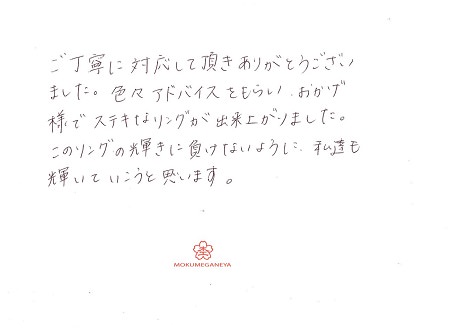 ご丁寧に対応して頂きありがとうござい
ました。色々アドバイスをもらい、おかげ
様でステキなリングが出来上がりました。
このリングの輝きに負けないように、私達も
輝いていこうと思います。
MOKUMEGANEYA